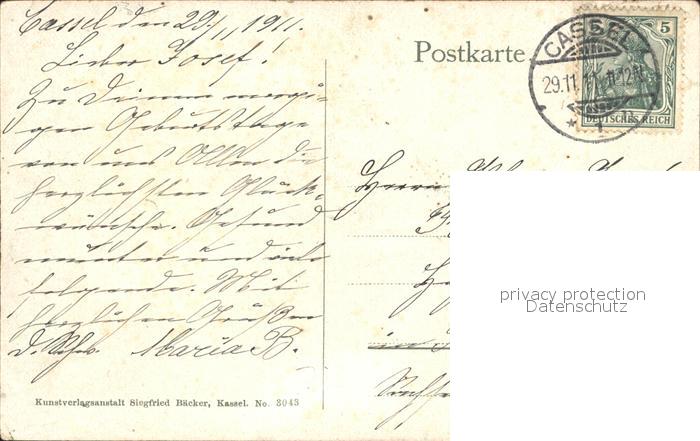 Cassel den 29/11 1911.
Lieber Josef!
Zu Deinem morgi-
gen Geburtstage
von uns Allen die
herzlichsten Glück-
wünsche. Gesund
munter und viele
folgende. Mit
herzlichen Grüßen
Maria B.
Kunstverlagsanstalt Siegfried Bäcker, Kassel. No. 3043
Postkarte.
5
DEUTSCHES REICH
CASSEL
29.11.11. 11-12N.
* 1
Herrn
in
privacy protection
Datenschutz